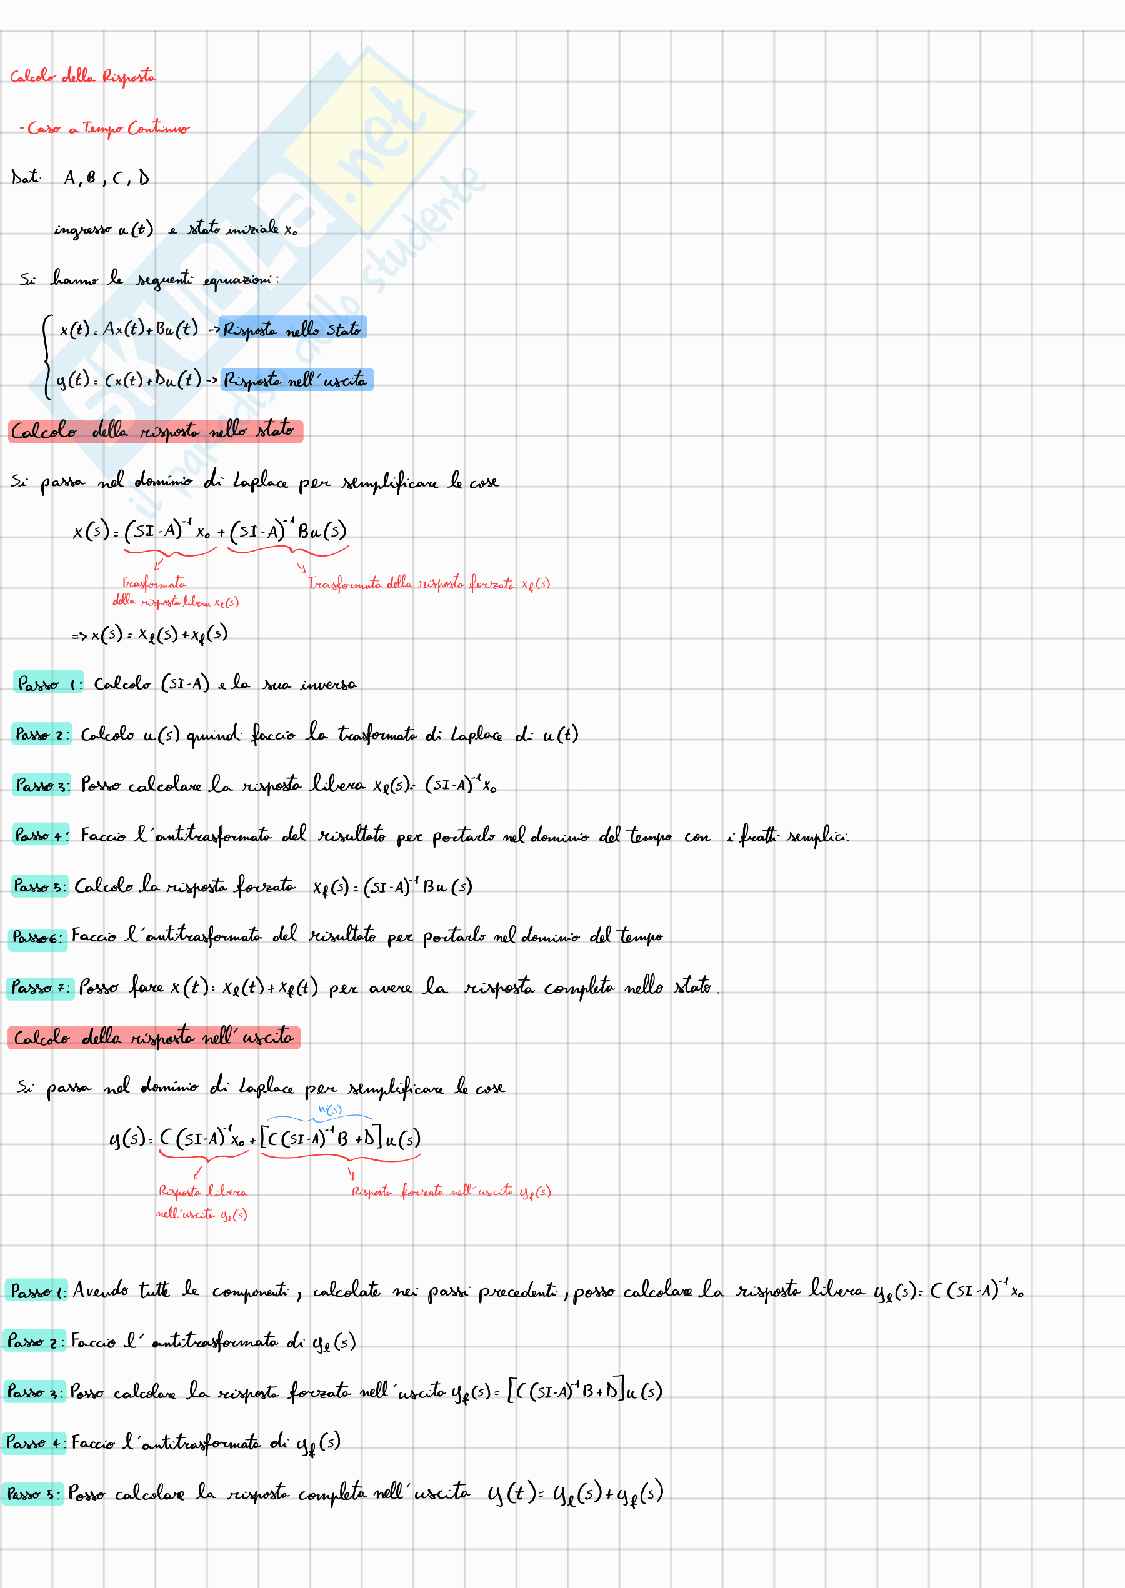 Calcolo della Risposta
- Caso a Tempo Continuo
Dati: A, B, C, D
ingresso u(t) e stato iniziale x₀
Si hanno le seguenti equazioni:
x(t) = Ax(t) + Bu(t) -> Risposta nello Stato
y(t) = Cx(t) + Du(t) -> Risposta nell'uscita
Calcolo della risposta nello stato
Si passa nel dominio di Laplace per semplificare le cose
x(s) = (SI-A)⁻¹ x₀ + (SI-A)⁻¹ Bu(s)
Trasformata della risposta forzata x_f(s)
Trasformata
della risposta libera x_ℓ(s)
=> x(s) = x_ℓ(s) + x_f(s)
Passo 1: Calcolo (SI-A) e la sua inversa
Passo 2: Calcolo u(s) quindi faccio la trasformata di Laplace di u(t)
Passo 3: Posso calcolare la risposta libera x_ℓ(s) = (SI-A)⁻¹ x₀
Passo 4: Faccio l'antitrasformata del risultato per portarlo nel dominio del tempo con i fratti semplici.
Passo 5: Calcolo la risposta forzata x_f(s) = (SI-A)⁻¹ Bu(s)
Passo 6: Faccio l'antitrasformata del risultato per portarlo nel dominio del tempo
Passo 7: Posso fare x(t) = x_ℓ(t) + x_f(t) per avere la risposta completa nello stato.
Calcolo della risposta nell'uscita
Si passa nel dominio di Laplace per semplificare le cose
y(s) = C(SI-A)⁻¹ x₀ + [C(SI-A)⁻¹ B + D] u(s)
Risposta libera
nell'uscita y_ℓ(s)
Risposta forzata nell'uscita y_f(s)
Passo 1: Avendo tutte le componenti, calcolate nei passi precedenti, posso calcolare la risposta libera y_ℓ(s) = C(SI-A)⁻¹ x₀
Passo 2: Faccio l'antitrasformata di y_ℓ(s)
Passo 3: Posso calcolare la risposta forzata nell'uscita y_f(s) = [C(SI-A)⁻¹ B + D] u(s)
Passo 4: Faccio l'antitrasformata di y_f(s)
Passo 5: Posso calcolare la risposta completa nell'uscita y(t) = y_ℓ(s) + y_f(s)
SKUOLA.net
il paradiso dello studente